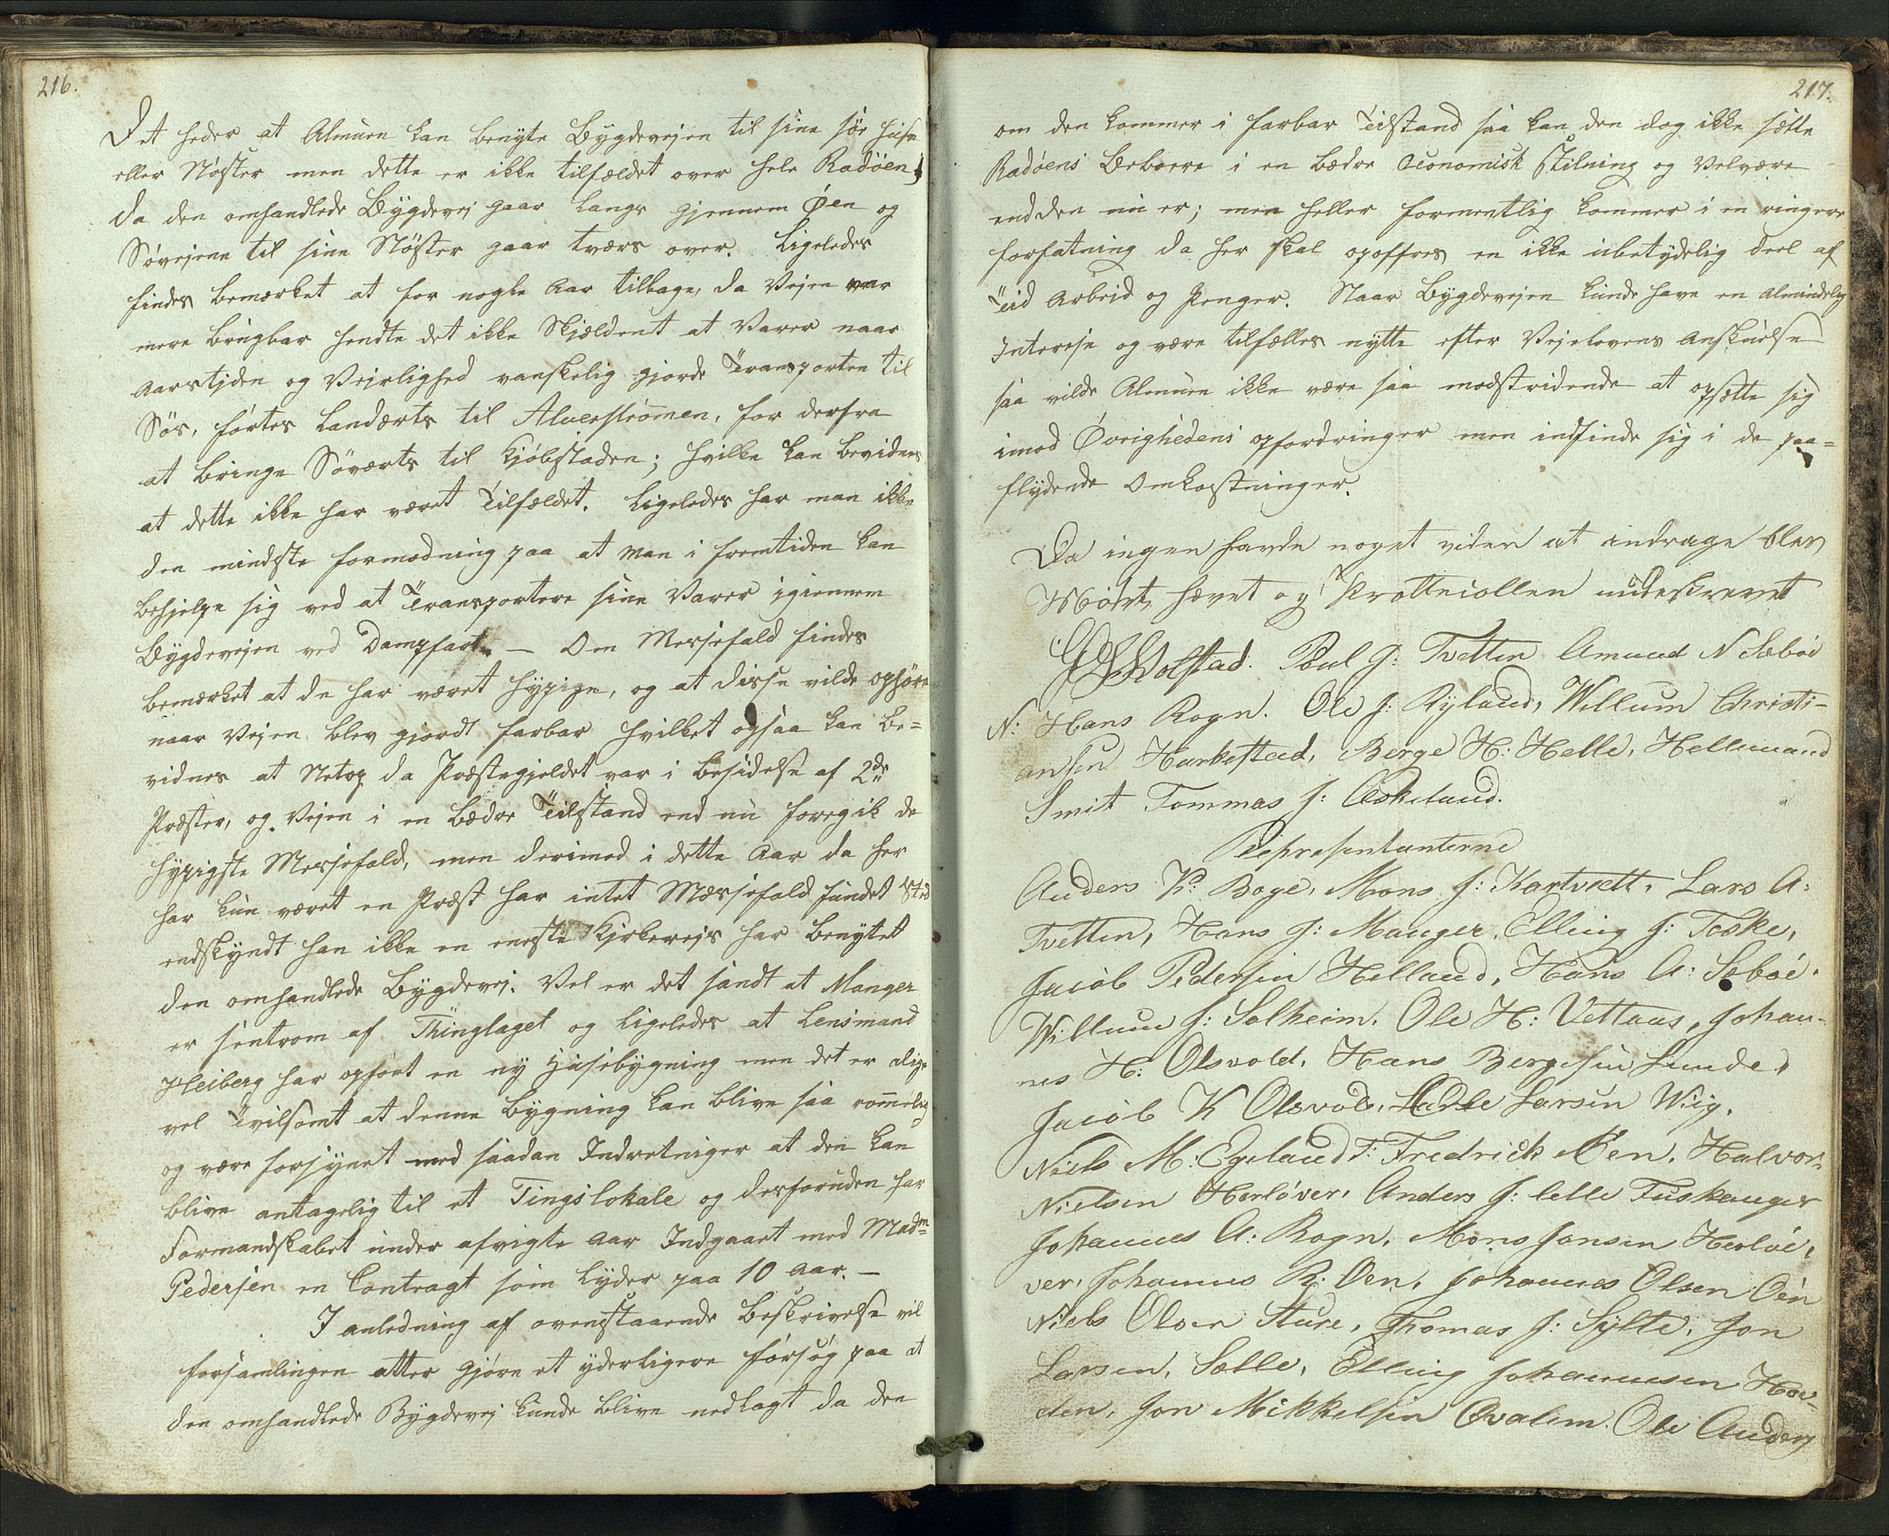 216.
Det heder at Almuen kan benyte Bygdevejen til sine sör huse
eller Nöster men dette er ikke tilfældet over hele Radöen,
da den omhandlede Bygdevej gaar langs gjennem Öen og
Sövejene til sine Nöster gaar tværs over. Ligeledes
findes bemærket at for nogle Aar tilbage, da Vejen var
mere brugbar hendte det ikke Skjældent at Varer naar
Aarstjden og Vejrlighed vanskelig gjorde Transporten til
Sös, förtes Landværts til Alverströmen, for derfra
at bringe Söværts til Kjöbstaden; hvilke kan bevidnes
at dette ikke har været Tilfældet. Ligeledes har man ikke
den mindste formodning paa at man i fremtiden kan
behjelpe sig ved at Transportere sine Varer igiennem
Bygdevejen ved Dampfart. — Om Messefald findes
bemærket at de har været hypige, og at disse vilde ophöre
naar Vejen blev gjordt farbar hvilket ogsaa kan be=
vidnes at Netop da Præstegjeldet var i besidelse af 2de
Præster, og Vejen i en bædre Tilstand end nu foregik de
hypigste Messefald, men derimod i dette Aar da her
har kun været en Præst har intet Mæssefald fundet Sted
endskyndt han ikke en eneste Kjrkerejs har benyttet
den omhandlede Bygdevej. Vel er det sandt at Manger
er sentrom af Thinglaget og ligeledes at Lensmand
Heiberg har opfört en ny Husebygning men det er alige
vel Tvilsomt at denne bygning kan blive saa rommelig
og være forsynet med saadan Indretninger at den kan
blive antagelig til et Tingslokale og desforuden har
Formandskabet under afvigte Aar Indgaaet med Madm
Pedersen en Contragt som lyder paa 10 Aar. —
I anledning af ovenstaaende beskrivelse vil
forsamlingen atter gjöre et yderligere forsög paa at
den omhandlede Bygdevej kunde blive nedlagt da den
217.
om den kommer i farbar Tilstand saa kan den dog ikke sætte
Radöens beboere i en bædre Oconomisk stilning og Velvære
end den nu er; men heller formentlig kommer i en ringere
forfatning da her skal opoffres en ikke ubetydelig deel af
Tid Arbeid og Penger. Naar Bygdevejen kunde have en Almindelig
Interese og være tilfælles nytte efter Vejelovens Anskuelse
saa vilde Almuen ikke være saa modstridende at opsætte sig
imod Övrighedens opfordringer men indfinde sig i de paa=
flydende Omkostninger.
Da ingen havde noget vider at andrage blev
Mödet hævet og Prottecollen underskrevet
Wolstad. Poul J: Tvetten Amund N Sæböe
N: Hans Rogn. Ole J: Ryland, Willum Christi-
ansen Harkestad, Berge H: Helle, Hellemand
Smit Tommas J: Askeland.
Representanterne
Anders K: Boge, Mons J: Kartvett, Lars A:
Tvetten, Hans J: Manger, Elling J: Toske,
Jacob Pedersen Helland, Hans A: Sæböe.
Willum J: Solheim. Ole H: Vettaas, Johan-
nes H: Olsvold, Hans Bergesen Lunde,
Jacob K Olsvold, Ladle Larsen Wiig.
Niels M: Egeland F: Fredrick Öen. Halvor
Nielsen Herlöver, Anders J: lille Fuskanger
Johannes A: Rogn, Mons Jonsen Herlöe,
ver, Johannes R: Öen, Johannes Olsen Öen
Niels Olsen Sture, Thomas J: Sylte, Jon
Larsen, Sælle, Elling Johannesen Hov-
den, Jon Mikkelsen Qvalem. Ole Anders